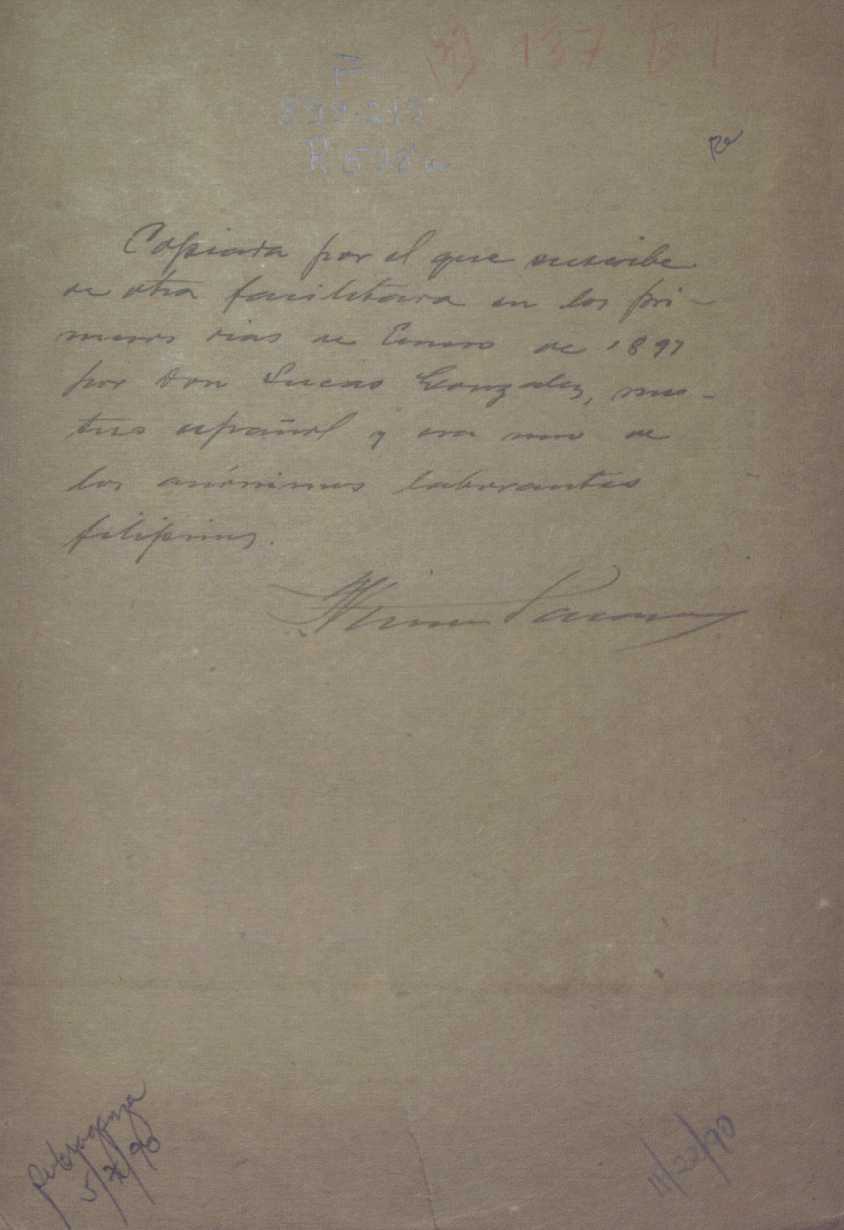 137
F
899.215
Copiada por el que suscribe
de otra facilitada en los pri-
meros dias de Enero de 1897
por Don Lucas Gonzalez, mes-
tizo español y era uno de
los anónimos laborantes
filipinos.
11/22/90